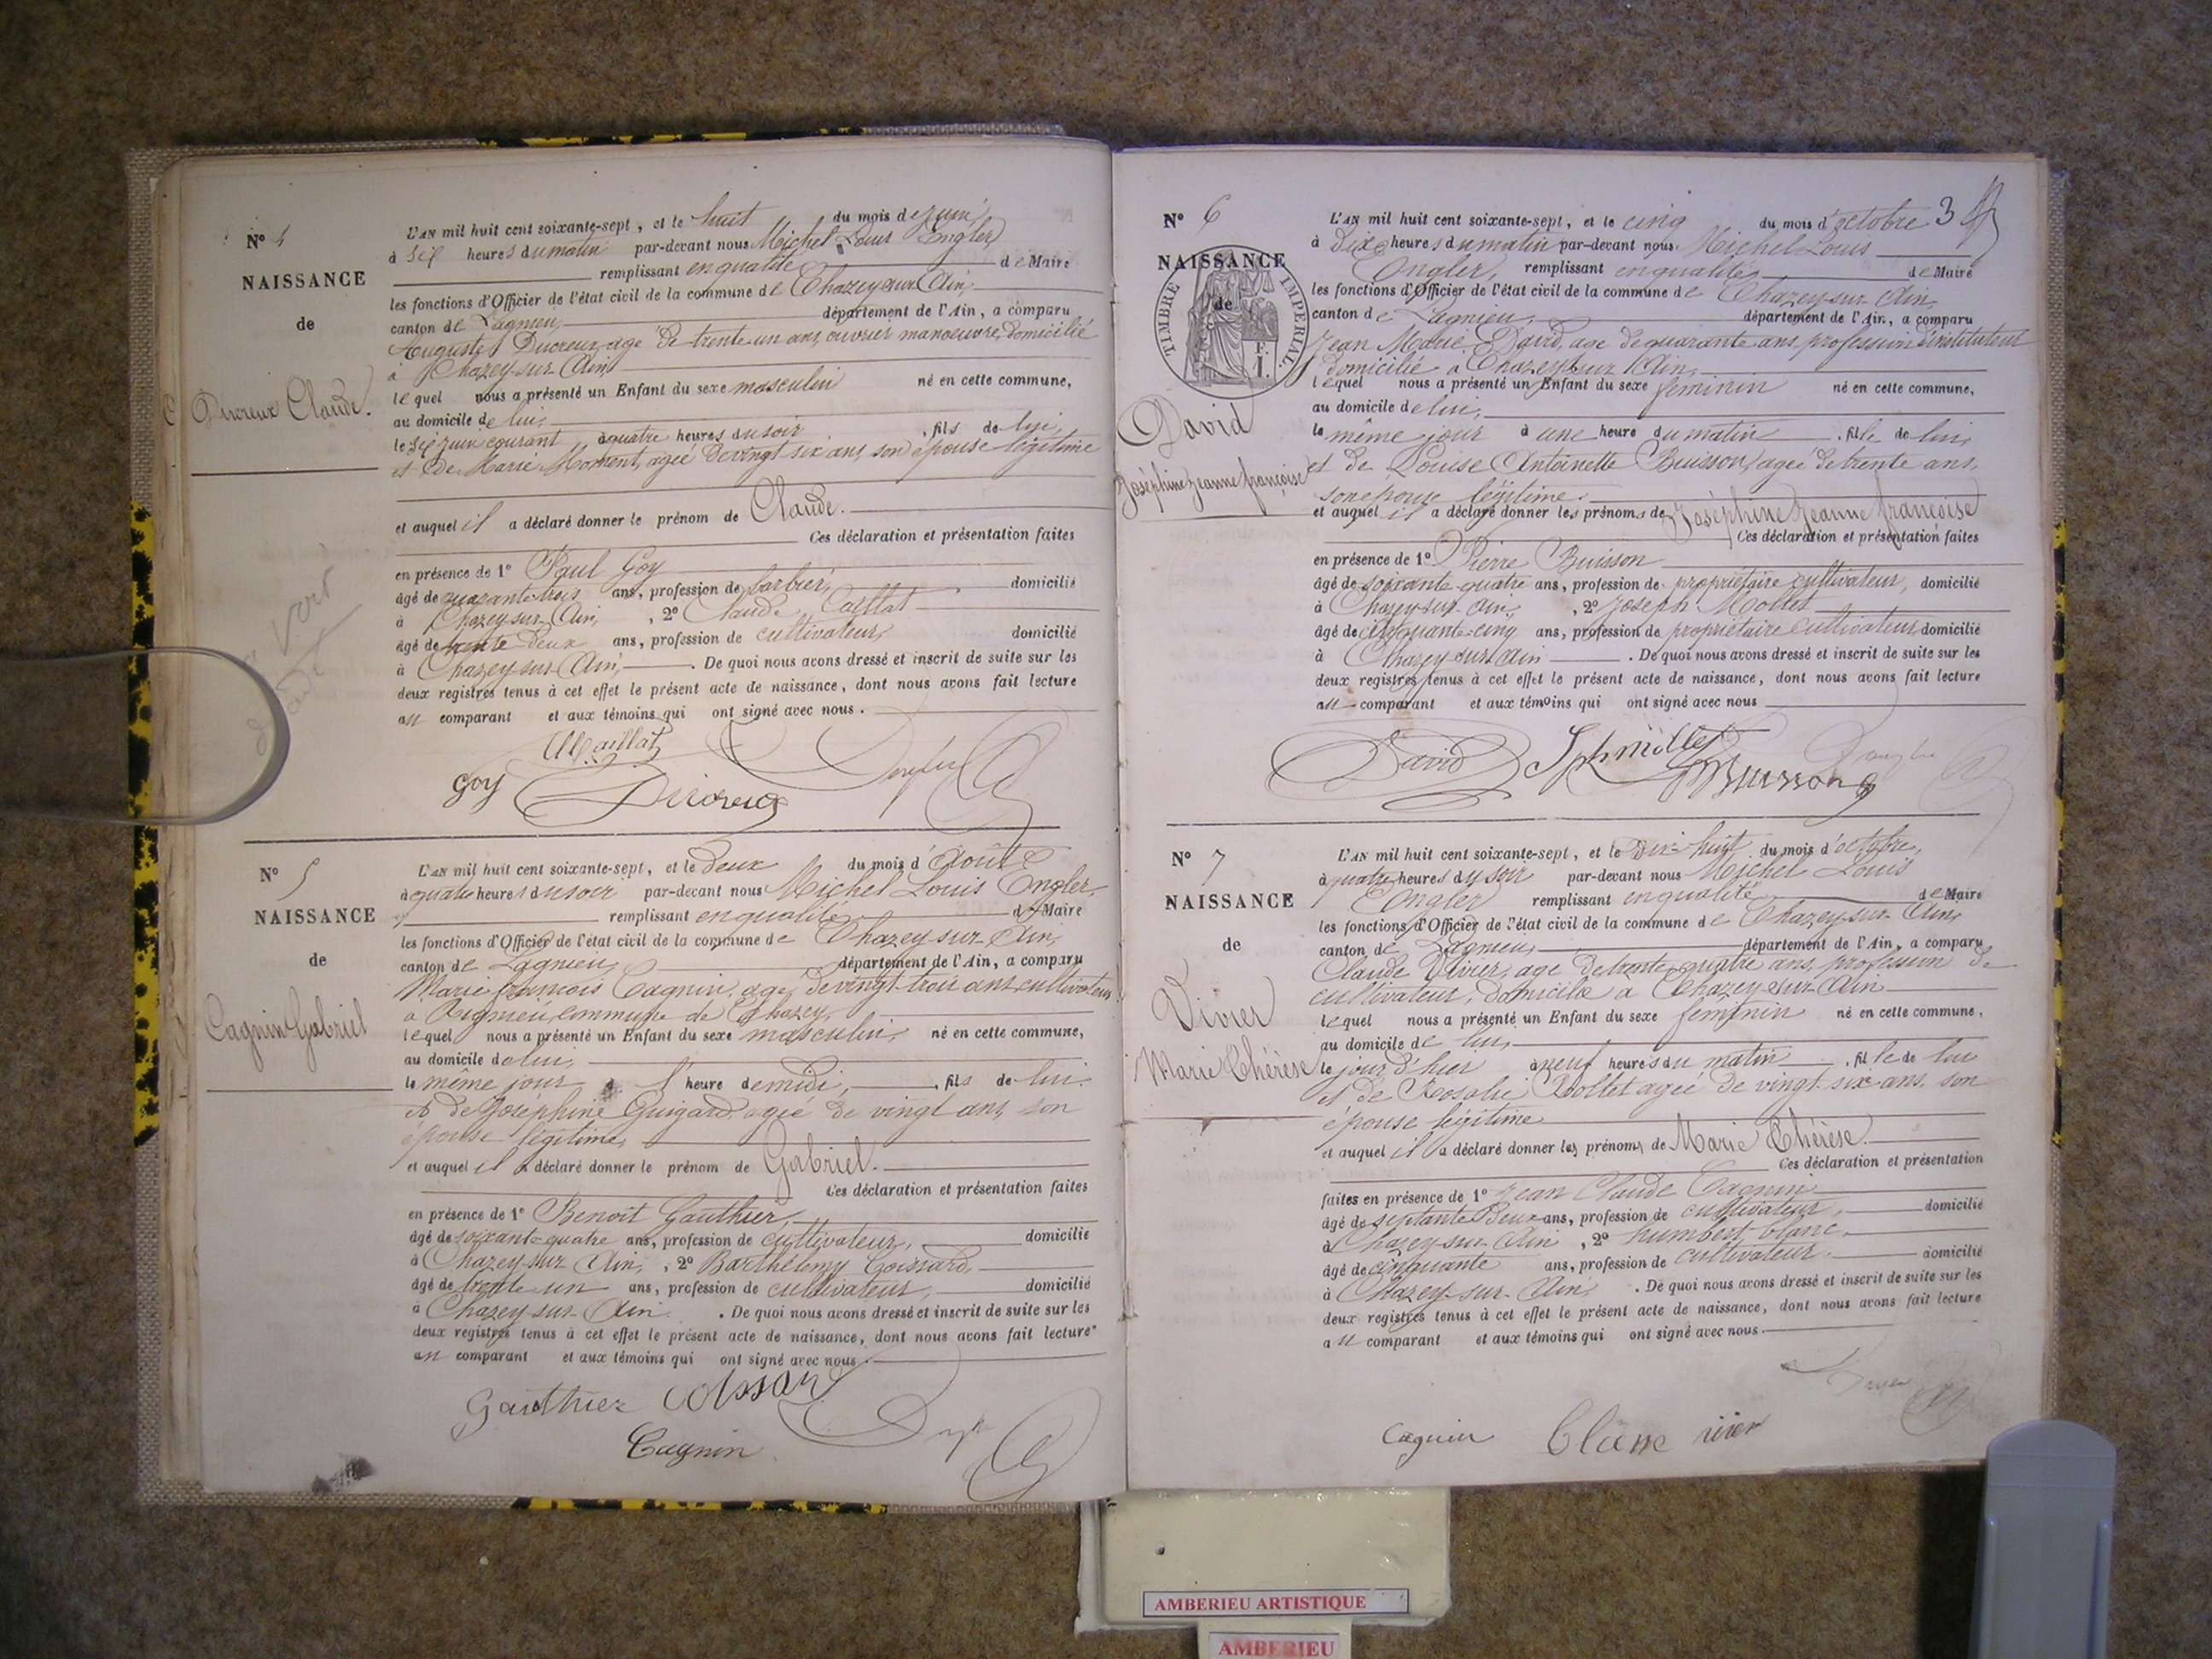 N° 4
NAISSANCE
de
Ducreux Claude.
L'AN mil huit cent soixante-sept, et le huit du mois de juin
à six heures du matin par-devant nous Michel Louis Engler
remplissant en qualité de Maire
les fonctions d'Officier de l'état civil de la commune de Chazey-sur-Ain,
canton de Lagnieu, département de l'Ain, a comparu
Auguste Ducreux, agé de trente un ans, ouvrier manoeuvre, domicilié
à Chazey-sur-Ain
lequel nous a présenté un Enfant du sexe masculin né en cette commune,
au domicile de lui,
le six juin courant à quatre heures du soir, fils de lui,
et de Marie Moment, agée de vingt six ans, son épouse légitime
et auquel il a déclaré donner le prénom de Claude.
Ces déclaration et présentation faites
en présence de 1° Paul Goy
âgé de quarante trois ans, profession de barbier, domicilié
à Chazey-sur-Ain, , 2° Claude Caillat
âgé de trente deux ans, profession de cultivateur, domicilié
à Chazey-sur-Ain, . De quoi nous avons dressé et inscrit de suite sur les
deux registres tenus à cet effet le présent acte de naissance, dont nous avons fait lecture
au comparant et aux témoins qui ont signé avec nous.
Caillat
Goy Ducreux
voir
N° 5
NAISSANCE
de
Cagnin Gabriel
L'AN mil huit cent soixante-sept, et le deux du mois d'Août
à quatre heures du soir par-devant nous Michel Louis Engler,
remplissant en qualité de Maire
les fonctions d'Officier de l'état civil de la commune de Chazey-sur-Ain,
canton de Lagnieu, département de l'Ain, a comparu
Marie françois Cagnin, agé de vingt-trois ans, cultivateur
à Rignieu, commune de Chazey,
lequel nous a présenté un Enfant du sexe masculin, né en cette commune,
au domicile de lui,
le même jour à l'heure de midi, , fils de lui
et de Joséphine Guigard agée de vingt ans, son
épouse légitime,
et auquel il a déclaré donner le prénom de Gabriel.
Ces déclaration et présentation faites
en présence de 1° Benoit Gauthier,
âgé de soixante-quatre ans, profession de cultivateur, domicilié
à Chazey-sur-Ain, , 2° Barthélemy Coissard,
âgé de trente un ans, profession de cultivateur, domicilié
à Chazey-sur-Ain . De quoi nous avons dressé et inscrit de suite sur les
deux registres tenus à cet effet le présent acte de naissance, dont nous avons fait lecture
au comparant et aux témoins qui ont signé avec nous.
Gauthier Coissard
Cagnin
N° 6
NAISSANCE
de
TIMBRE IMPERIAL
F.
1.
David
Joséphine Jeanne françoise
L'AN mil huit cent soixante-sept, et le cinq du mois d'octobre 3
à dix heures du matin par-devant nous Michel Louis
Engler, remplissant en qualité de Maire
les fonctions d'Officier de l'état civil de la commune de Chazey-sur-Ain,
canton de Lagnieu, département de l'Ain, a comparu
Jean Marie David, agé de quarante ans, profession d'instituteur
domicilié à Chazey-sur-Ain,
lequel nous a présenté un Enfant du sexe féminin né en cette commune,
au domicile de lui,
le même jour à une heure du matin , fille de lui,
et de Louise Antoinette Buisson, agée de trente ans,
son épouse légitime.
et auquel il a déclaré donner les prénoms de Joséphine Jeanne françoise
Ces déclaration et présentation faites
en présence de 1° Pierre Buisson
âgé de soixante-quatre ans, profession de propriétaire cultivateur, domicilié
à Chazey-sur-Ain, , 2° Joseph Mollet
âgé de cinquante-cinq ans, profession de propriétaire cultivateur, domicilié
à Chazey-sur-Ain . De quoi nous avons dressé et inscrit de suite sur les
deux registres tenus à cet effet le présent acte de naissance, dont nous avons fait lecture
au comparant et aux témoins qui ont signé avec nous
David Jph mollet
Buisson
N° 7
NAISSANCE
de
Vivier
Marie Thérèse
L'AN mil huit cent soixante-sept, et le dix-huit du mois d'octobre,
à quatre heures du soir par-devant nous Michel Louis
Engler remplissant en qualité de Maire
les fonctions d'Officier de l'état civil de la commune de Chazey-sur-Ain,
canton de Lagnieu, département de l'Ain, a comparu
Claude Vivier, agé de trente-quatre ans, profession de
cultivateur, domicilié à Chazey-sur-Ain
lequel nous a présenté un Enfant du sexe féminin né en cette commune,
au domicile de lui,
le jour d'hier à neuf heures du matin , fille de lui
et de Rosalie Mollet agée de vingt six ans, son
épouse légitime
et auquel il a déclaré donner les prénoms de Marie Thérèse.
Ces déclaration et présentation
faites en présence de 1° Jean Claude Cagnin
âgé de septante deux ans, profession de cultivateur, domicilié
à Chazey-sur-Ain , 2° humbert blanc,
âgé de cinquante ans, profession de cultivateur, domicilié
à Chazey-sur-Ain, . De quoi nous avons dressé et inscrit de suite sur les
deux registres tenus à cet effet le présent acte de naissance, dont nous avons fait lecture
au comparant et aux témoins qui ont signé avec nous
Cagnin Blanc vivier
AMBERIEU ARTISTIQUE
AMBERIEU